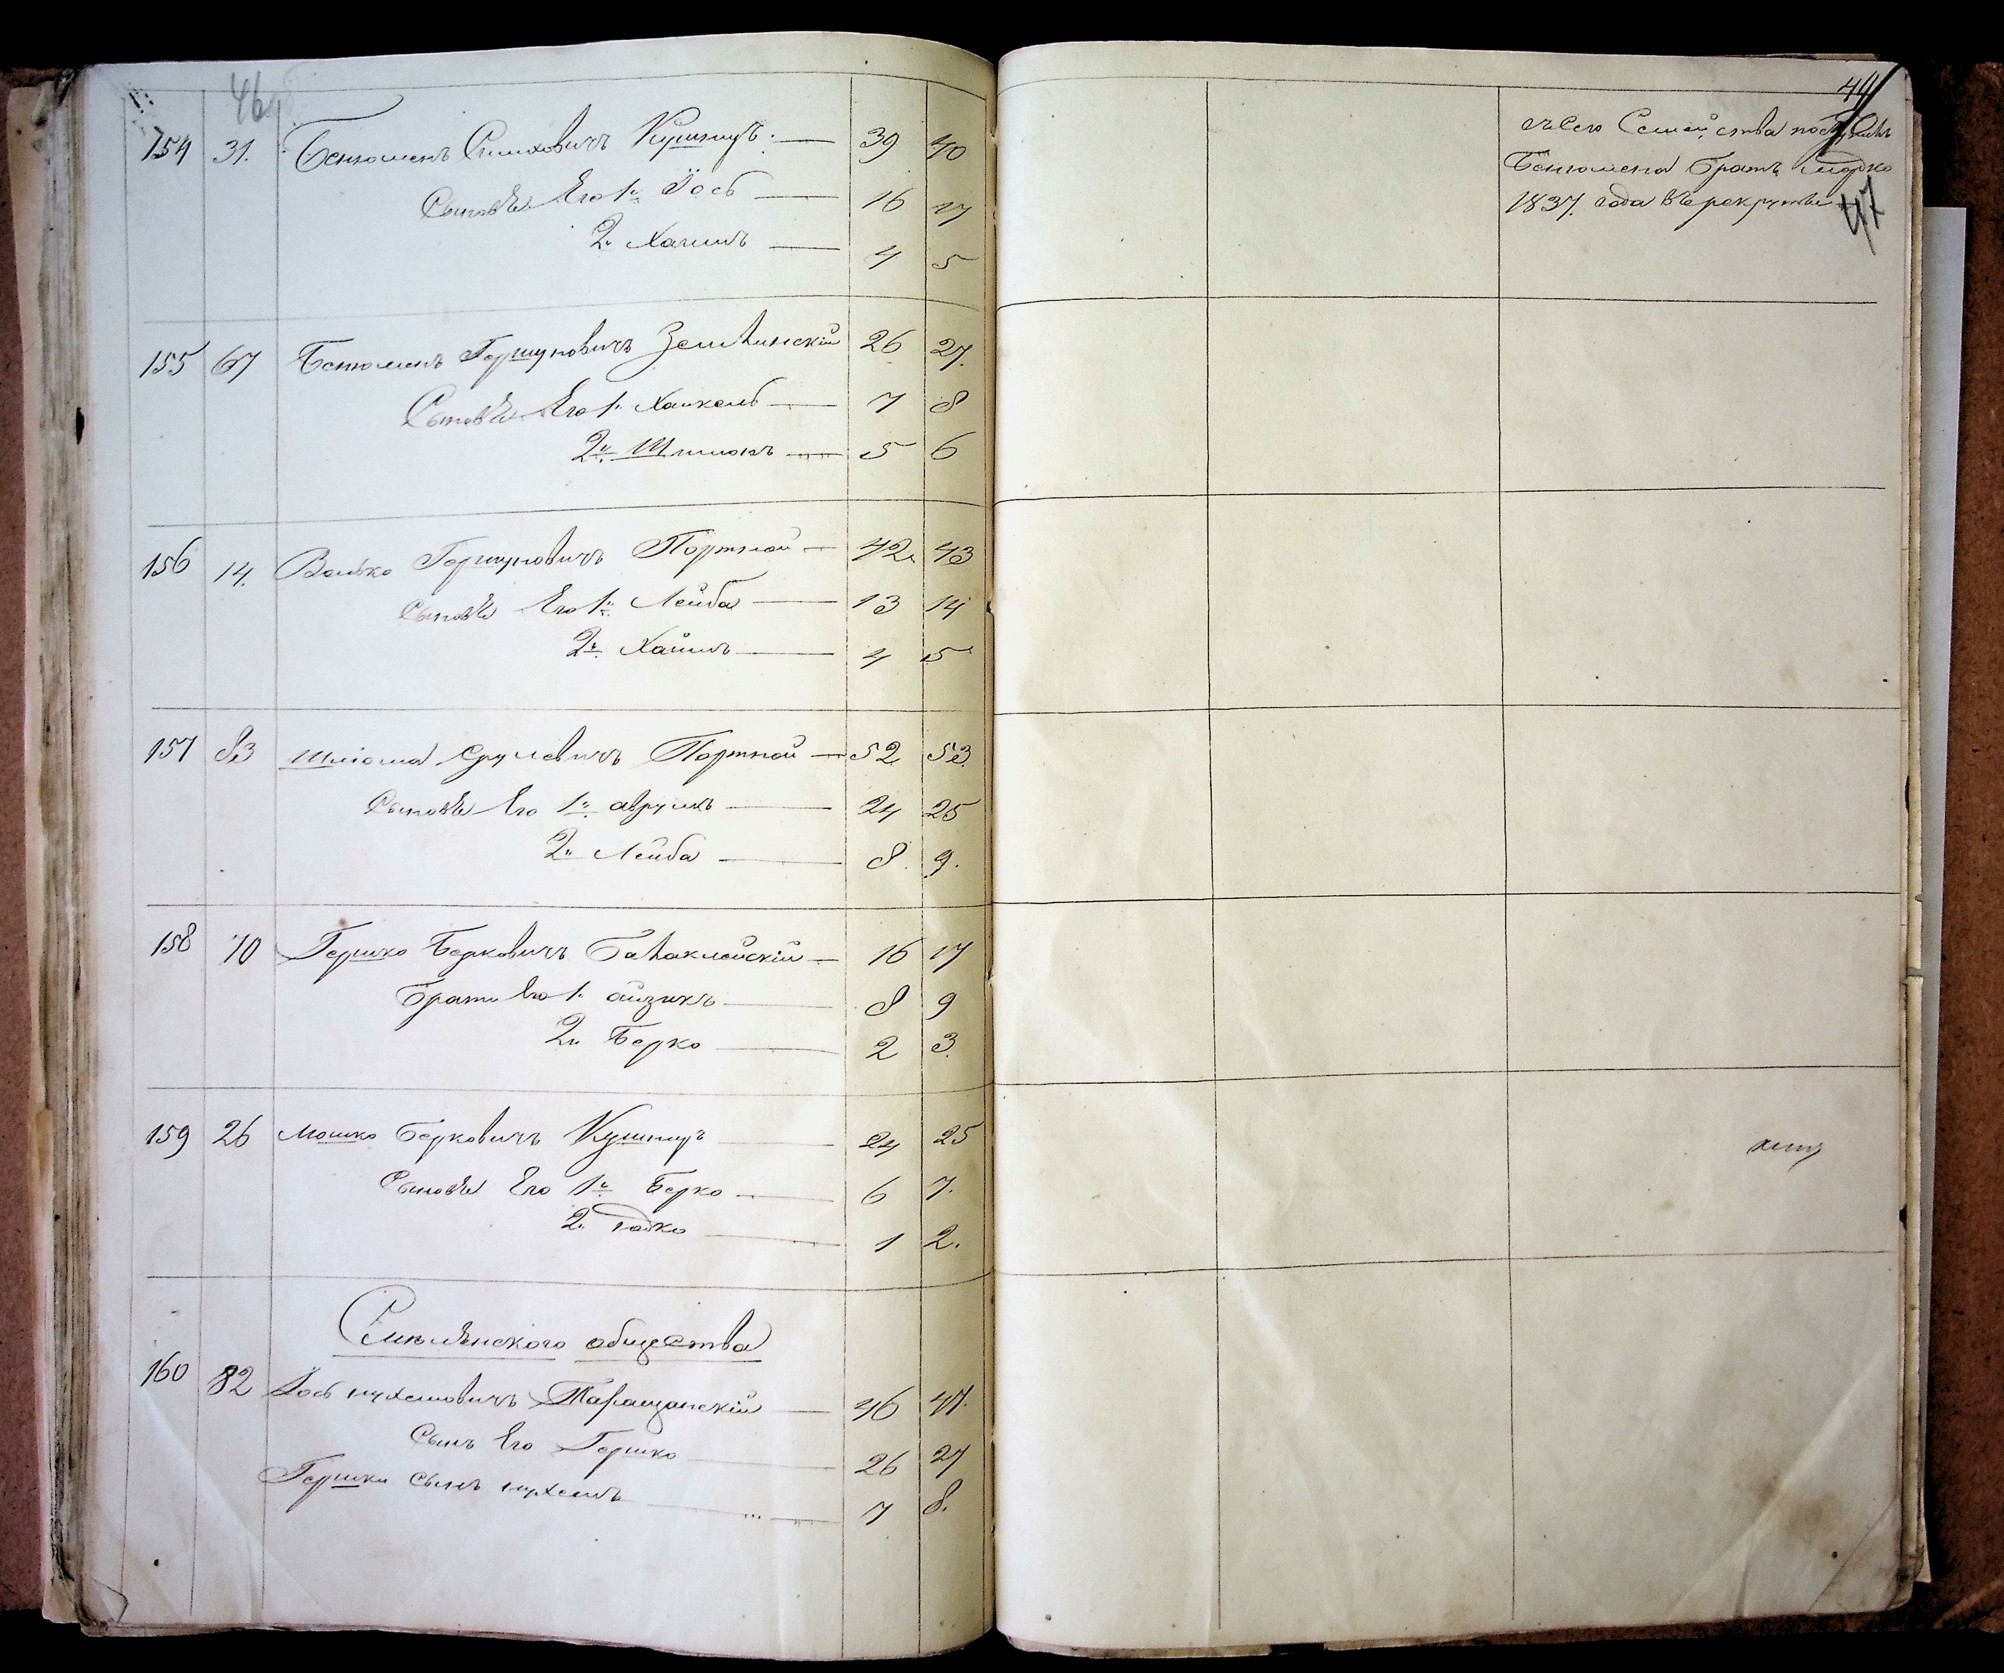 46
154 31. Бенюменъ Симховичъ Кушниръ 39 40
Сыновѣя Его 1й Иось 16 17
2й Хаимъ 4 5
155 67 Бенюменъ Гершуновичъ 26 27.
Сыновѣя Его 1. Хаикель 7 8
2й 5 6
156 14. Волько Гершуновичъ Портной 42 43
Сыновѣя Его 1й Лейба 13 14
2й Хаимъ 4 5
157 83 Шлiома Срулевичъ Портной 52 53
Сыновѣя Его 1й аврумъ 24 25
2й Лейба 8 9.
158 70 Гершко Берковичъ 16 17
Братья Его 1. айзикъ 8 9
2й Берко 2 3.
159 26 Мошко Берковичъ Кушниръ 24 25
Сыновѣя Его 1й Берко 6 7.
2й 1 2.
Смѣлянского общества
160 82 Иось нухимовичъ Таращанскiй 46 47.
Сынъ Его Гершко 26 27
Гершки сынъ нухимъ 7 8.
44
съ Сего Семейства поступилъ
Бенюмена братъ Мордко
1837. года въ рекруты
47